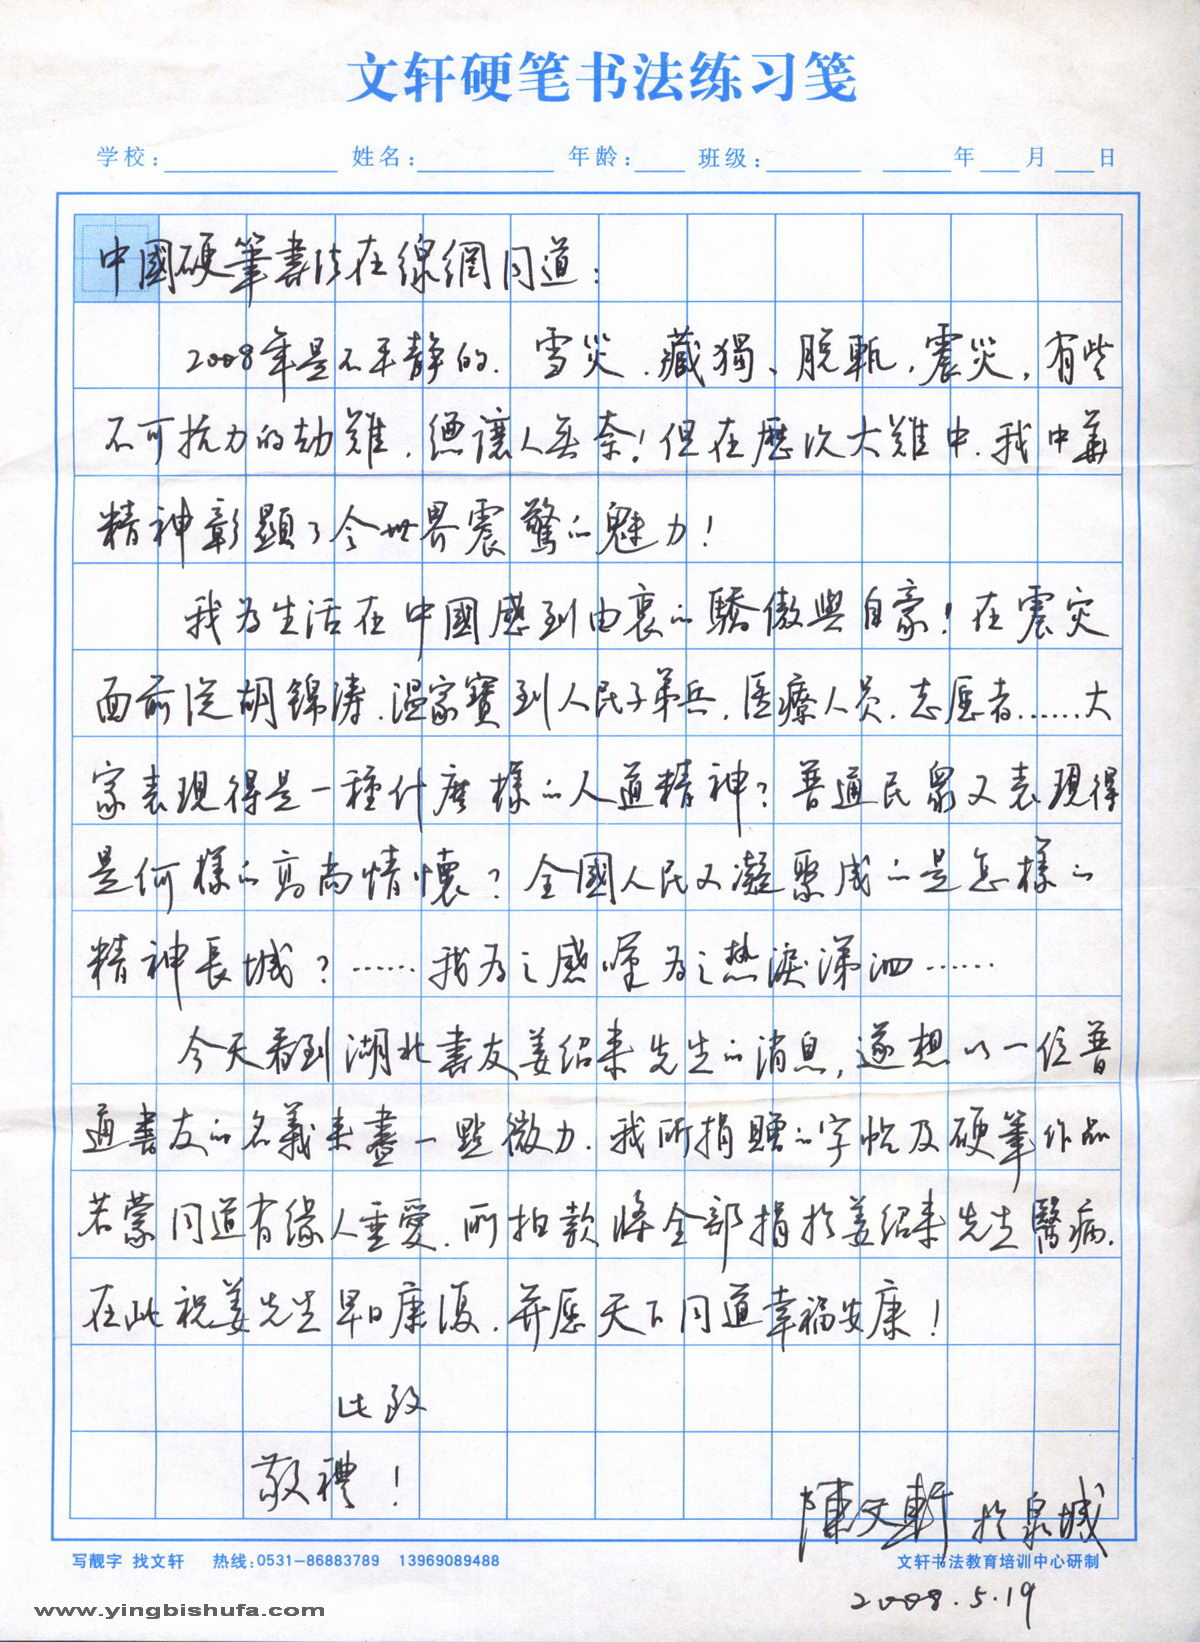 文轩硬笔书法练习笺
学校： 姓名： 年龄： 班级： 年 月 日
中國硬筆書法在線網同道：
2008年是不平静的、雪災、藏獨、脱軌、震災，有些
不可抗力的劫難，總讓人無奈！但在歷次大難中，我中華
精神彰顯了令世界震驚的魅力！
我为生活在中國感到由衷的驕傲與自豪！在震灾
面前從胡錦涛、温家寶到人民子弟兵、医療人员、志愿者……大
家表現得是一種什麽樣的人道精神？普通民衆又表現得
是何樣的高尚情懷？全國人民又凝聚成的是怎樣的
精神長城？……我为之感嘆为之热淚涕泗……
今天看到湖北書友姜绍来先生的消息，遂想以一位普
通書友的名義来盡一點微力。我所捐贈的字帖及硬筆作品
若蒙同道有缘人垂愛，所拍款將全部捐於姜绍来先生醫病。
在此祝姜先生早日康復，并愿天下同道幸福安康！
此致
敬禮！
陳文軒 於泉城
2008.5.19
写靓字 找文轩 热线:0531-86883789 13969089488
文轩书法教育培训中心研制
www.yingbishufa.com